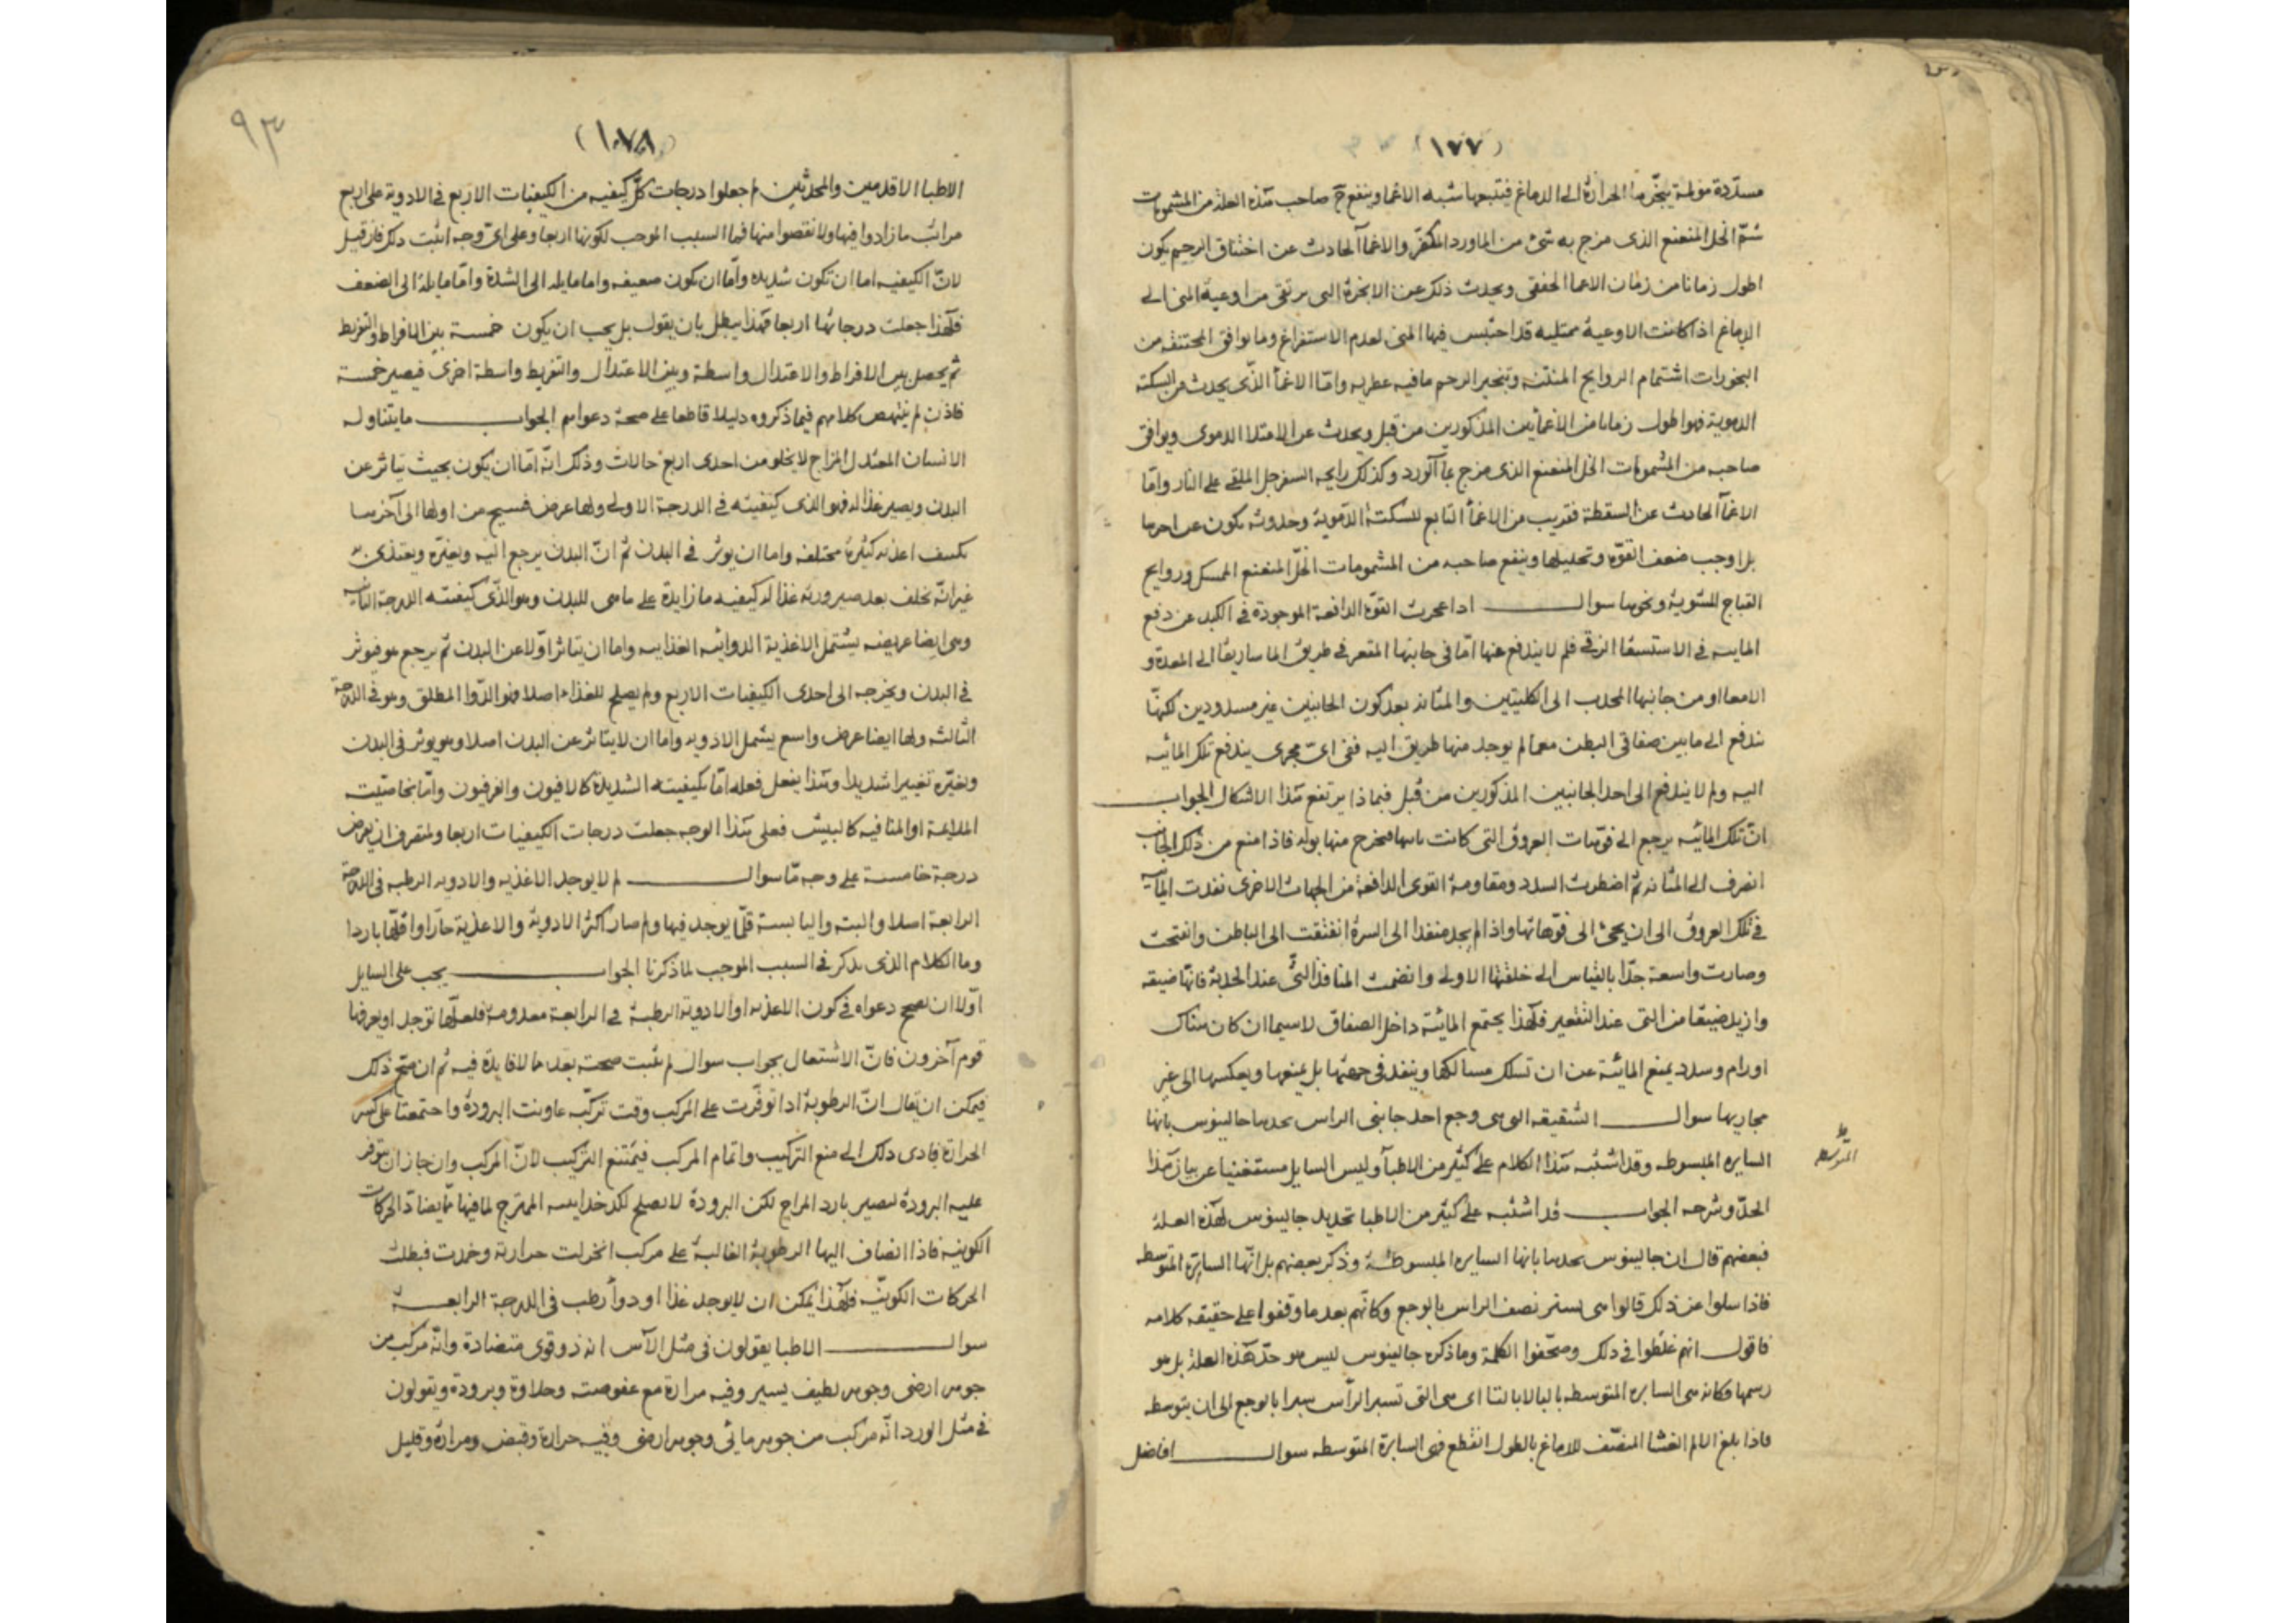 (١٧٧)
مسدّدة مؤلمة يبخّرها الحرارة الى الدماغ فيتبعها شبه الاغما وينفع صاحب هذه العلة من المشمومات
شمّ الخل المنعنع الذى مزج به شئ من الماورد المكفر والاغمآ الحادث عن اختناق الرحم يكون
اطول زمانا من زمان الاغما الخفقى ويحدث ذلك عن الابخرة التى ترتقى من اوعية المنى الى
الدماغ اذا كانت الاوعية ممتليه قد احتبس فيها المنى لعدم الاستفراغ وما يوافق المختنقه من
البخورات اشتمام الروايح المنتنه وتبخير الرحم مافيه عطريه وامّا الاغمأ الذّى يحدث من السكتة
الدموية فهو اطول زمانا من الاغمائين المذكورين من قبل ويحدث عن الامتلا الدموى ويوافق
صاحبه من المشمومات الخل المنعنع الذى مزج بمآ آلورد وكذلك رايحه السفرجل الملقى على النار وامّا
الاغمآ الحادث عن السقطة فقريب من الاغمأ التابع للسكتة الدّموية وحدوثه يكون عن
بل اوجب ضعف القوّة وتحليلها وينفع صاحبه من المشمومات الخلّ المنعنع الممسك وروايح
القباج المشوية ونحوها سوال اذا عجزت القوّة الدافعة الموجودة فى الكبد عن دفع
المايه فى الاستسقا الزقى فلم لا يندفع عنها امّا فى جانبها المقعر فى طريق الماساريقا الى المعدة و
الامعا او من جانبها المحدب الى الكليتين والمثانه بعد كون الجانبين غير مسدودين لكنها
تندفع الى مابين صفاقى البطن مع ما لم يوجد منها طريق اليه ففى اىّ مجرى يندفع تلك المائيه
اليه ولم لا يندفع الى احد الجانبين المذكورين من قبل فبماذا يرتفع هذا الاشكال الجواب
انّ تلك المائيه يرجع الى فوّهات العروق التى كانت فيخرج منها بوله فاذا منع من ذلك الجانب
انصرف الى المثانه ثمّ اضطرت السدد ومقاومة القوى الدافعة من الجهات الاخرى نفذت المايه
فى تلك العروق الى ان يجئ الى فوّهاتها واذا لم يجد منفذا الى السرة انفتقت الى الباطن وانفتحت
وصارت واسعة جدّا بالقياس الى خلقتها الاولى وانضمت المنافذ التى عند الحدبة فانها ضيقه
وازيد ضيقا من التى عند التقعير فلهذا يجتمع المائية داخل الصفاق لاسيما ان كان هناك
اورام وسدد يمنع المائية عن ان تسلك مسالكها وينفذ فى جهتها بل يمنعها ويعكسها الى غير
مجاريها سوال الشقيقه التى هى وجع احد جانبى الراس يحدها جالينوس بانها
السايره المبسوطه وقد اشتبه هذا الكلام على كثير من الاطبآ وليس السايل مستغنيا عن بيان هذا
المتوسطه ظ
الحدّ وشرحه الجواب قد اشتبه على كثير من الاطبا تحديد جالينوس لهذه العلة
فبعضهم قال ان جالينوس يحدها بانها السايره المبسوطة وذكر بعضهم بل انّها السايرة المتوسطه
فاذا سلوا عن ذلك قالوا هى يستر نصف الراس بالوجع وكانهم بعد ما وقفوا على حقيقه كلامه
فاقول انهم غلطوا فى ذلك وصحّفوا الكلمة وما ذكره جالينوس ليس هو حدّ هذه العلة بل هو
رسمها فكانه هى السابره المتوسطه بالبا لا بالتا اى هى التى تسبر الرأس سبرا بالوجع الى ان يتوسطه
فاذا بلغ الالم الغشا المنصّف للدماغ بالطول انقطع فهى السابرة المتوسطه سوال افاضل
(١٧٨)
٩٣
الاطبا الاقدمين والمحدثين لم جعلوا درجات كلّ كيفيه من الكيفيات الاربع فى الادوية على اربع
مراتب ما زادوا فيها ولا نقصوا منها فما السبب الموجب لكونها اربعا وعلى اىّ وجه اثبت ذلك فان قيل
لانّ الكيفيه اما ان تكون شديده وامّا ان تكون ضعيفه واما مايله الى الشدة وامّا مايلة الى الضعف
فلهذا جعلت درجاتها اربعا فهذا يبطل بان يقول بل يجب ان يكون خمسة بين الافراط والتفريط
ثم يحصل بين الافراط والاعتدال واسطة وبين الاعتدال والتفريط واسطة اخرى فيصير خمسة
فاذن لم ينتهض كلامهم فيما ذكروه دليلا قاطعا على صحة دعواهم الجواب ما يتناوله
الانسان المعتدل المزاج لا يخلو من احدى اربع حالات وذلك انّه امّا ان يكون بحيث يتاثر عن
البدن ويصير غذا له فهو الذى كيفيته فى الدرجة الاولى ولها عرض فسيح من اولها الى آخرها
اغذيه كثيرة مختلفه واما ان يوثر فى البدن ثم انّ البدن يرجع اليه ويغيّره ويغتذى به
غير انّه يخلف بعد صيرورته غذا له كيفيه ما زايدة على ما هى للبدن وهو الذّى كيفيته الدرجة الثانيه
وهى ايضا عريضه يشتمل الاغذية الدوائيه الغذايه واما ان يتاثر اوّلا عن البدن ثم يرجع هو فيوثر
فى البدن ويخرجه الى احدى الكيفيات الاربع ولم يصلح للغذاء اصلا فهو الدّوا المطلق وهو فى الدرجة
الثالثه ولها ايضا عرض واسع يشمل الادويه واما ان لا يتاثر عن البدن اصلا وهو يوثر فى البدن
ويغيّره تغييرا شديدا وهذا يفعل فعله امّا بكيفيته الشديدة كالافيون والفرفيون وامّا بخاصّيته
الملايمة او المنافيه كالبيش فعلى هذا الوجه جعلت درجات الكيفيات اربعا ولمتصرف ان يفرض
درجة خامسة على وجه مّا سوال لم لا يوجد الاغذيه والادويه الرطبه فى الدرجة
الرابعة اصلا والبته واليابسة قلّما يوجد فيها ولم صار اكثر الادوية والاغذية حارّا واقلّها باردا
وما الكلام الذى يذكر فى السبب الموجب لما ذكرنا الجواب يجب على السايل
اوّلا ان يصحح دعواه فى كون الاغذيه او الادوية الرطبة فى الرابعة معدومة فلعلّها توجد او يعرفها
قوم آخرون فانّ الاشتغال بجواب سوال لم يثبت صحته بعد مما لا فايدة فيه ثم ان صحّ ذلك
فيمكن ان يقال انّ الرطوبة اذا توفّرت على المركب وقت تركّبه عاونت البرودة واجتمعتا على كسر
الحرارة فادى ذلك الى منع التركيب واتمام المركب فيمتنع التركيب لانّ المركب وان جاز ان يتوفر
عليه البرودة ليصير بارد المزاج لكن البرودة لا يصلح لكدخدايه الممتزج لما فيها ممّا يضادّ الحركات
الكونيه فاذا انضاف اليها الرطوبة الغالبة على مركب انخزلت حرارته وخمدت فبطلت
الحركات الكونيّه فلهذا يمكن ان لا يوجد غذا او دوأ رطب فى الدرجة الرابعة
سوال الاطبا يقولون فى مثل الآس انه ذو قوى متضادة وانّه مركب من
جوهر ارضى وجوهر لطيف يسير وفيه مرارة مع عفوصته وحلاوة وبرودة ويقولون
فى مثل الورد انّه مركب من جوهر مائى وجوهر ارضى وفيه حرارة وقبض ومرارة وقليل